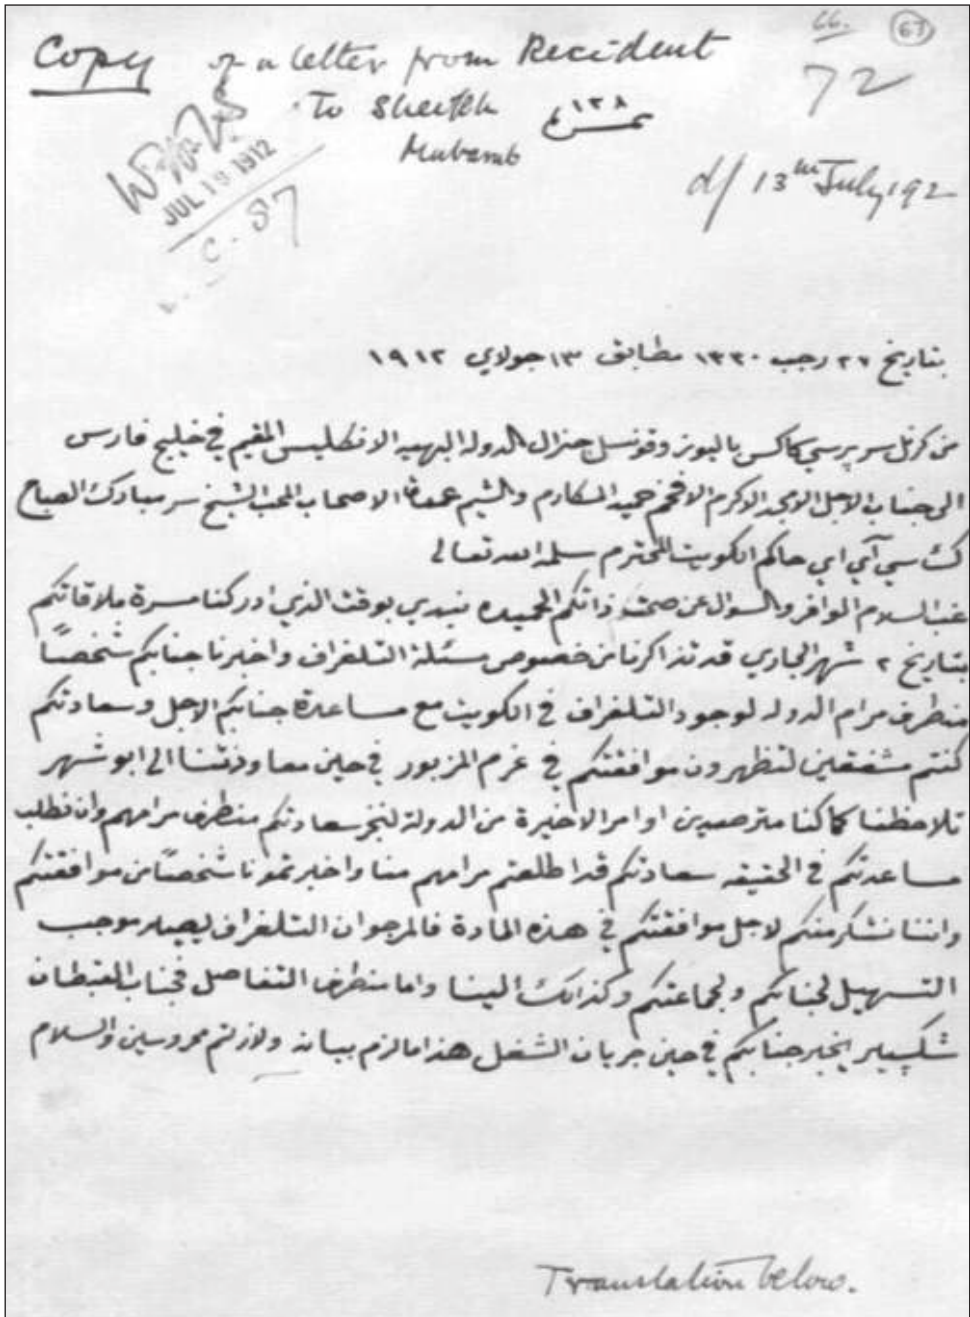 66.
67
72
Copy of a letter from Recident
To Sheikh
Mubarak
١٣٨
d/ 13th July 192
JUL 19 1912
C-87
بتاريخ ٢٧ رجب ١٣٣٠ مطابق ١٣ جولاي ١٩١٢
من كرنل سر پرسي كاكس باليوز وقونسل جنرال الدولة البهيه الانكليس المقيم في خليج فارس
الى جناب الاجل الامجد الاكرم الافخم حميد المكارم والشيم عمدة الاصحاب المحب الشيخ سر مبارك الصباح
كت سي آي اي حاكم الكويت المحترم سلمه الله تعالى
غب السلام الوافر والسوال عن صحت ذاتكم الحميده نبدي بوقت الذي ادركنا مسرة ملاقاتكم
بتاريخ ٢ شهر الجاري قد تذاكرنا من خصوص مسئلة التلغراف واخبرنا جنابكم شخصاً
منطرف مرام الدوله لوجود التلغراف في الكويت مع مساعدة جنابكم الاجل وسعادتكم
كنتم مشفقين لتظهرون موافقتكم في عزم المزبور في حين معاودتنا الى ابو شهر
تلاحظنا كاكنا مترصدين اوامر الاخيرة من الدولة لنخبر سعادتكم منطرف مرامهم وان نطلب
مساعدتكم في الحقيقه سعادتكم قد اطلعتم مرامهم منا واخبرتمونا شخصاً من موافقتكم
واننا نشكر منكم لاجل موافقتكم في هذه المادة فالمرجو ان التلغراف ليصير موجب
التسهيل لجنابكم ولجماعتكم وكذالك الينا واما منطرف التفاصل فجناب القبطان
شكسپير يخبر جنابكم في حين جريان الشغل هذا ما لزم بيانه ولازلتم محروسين والسلام
Translation below.